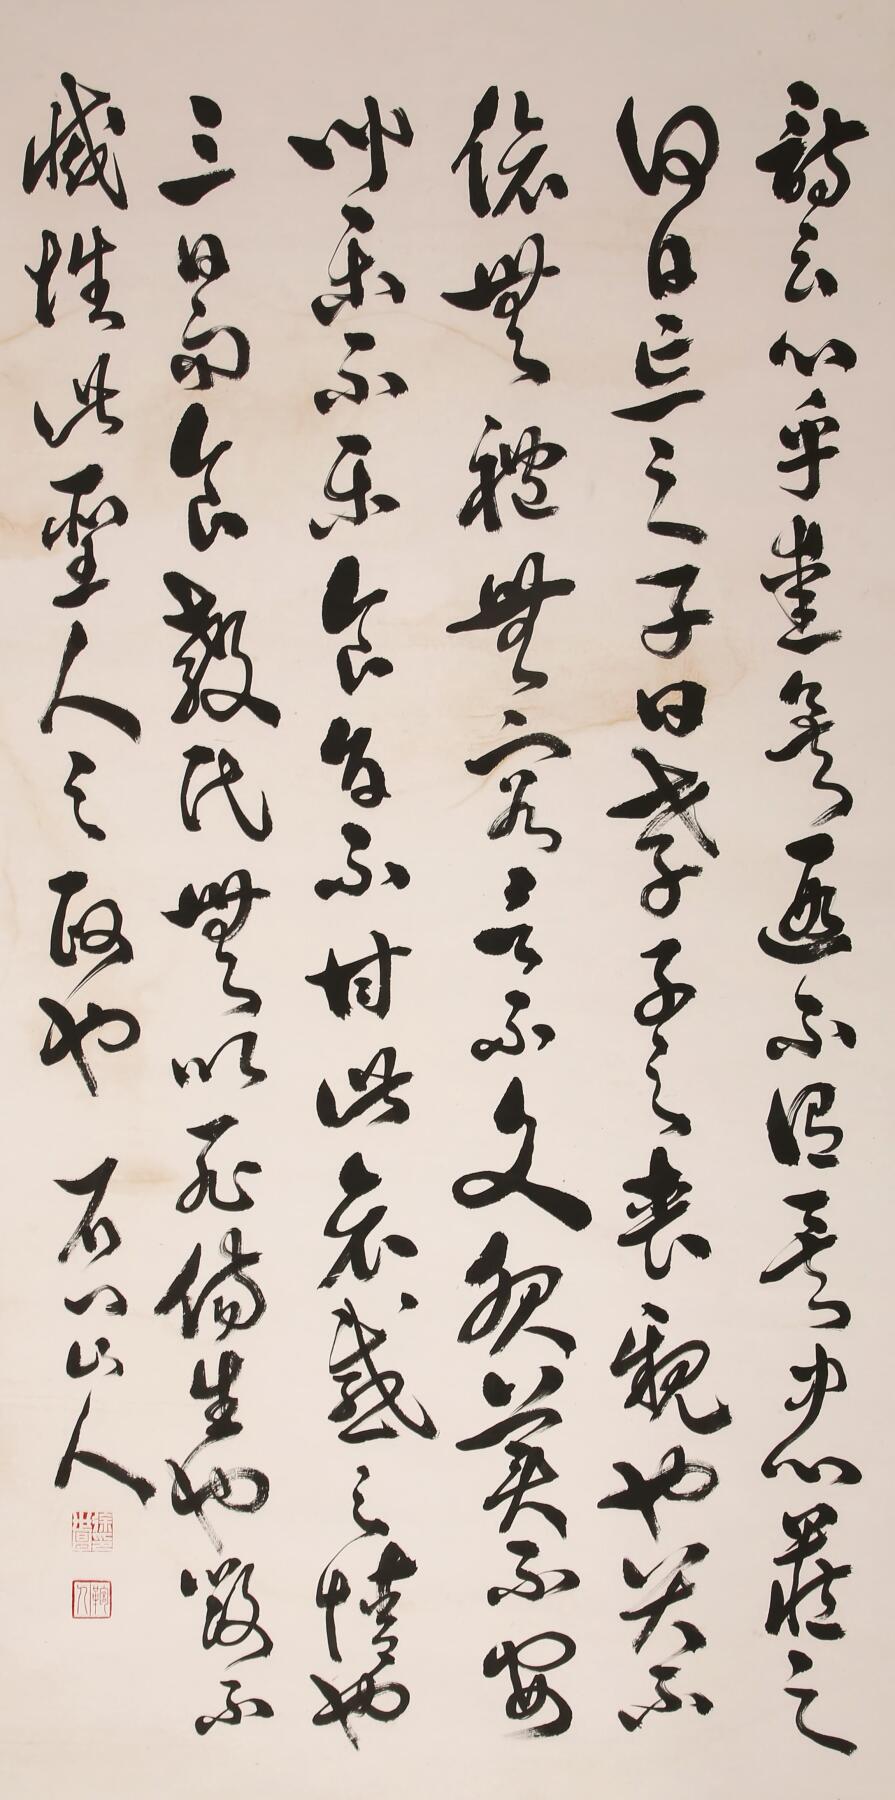 詩云心乎愛矣遐不謂矣中心藏之
何日忘之子曰孝子之喪親也哭不
偯無禮無容言不文服美不安
聞樂不樂食旨不甘此哀慼之情也
三日而食教民無以死傷生也毀不
滅性此聖人之政也 石門山人